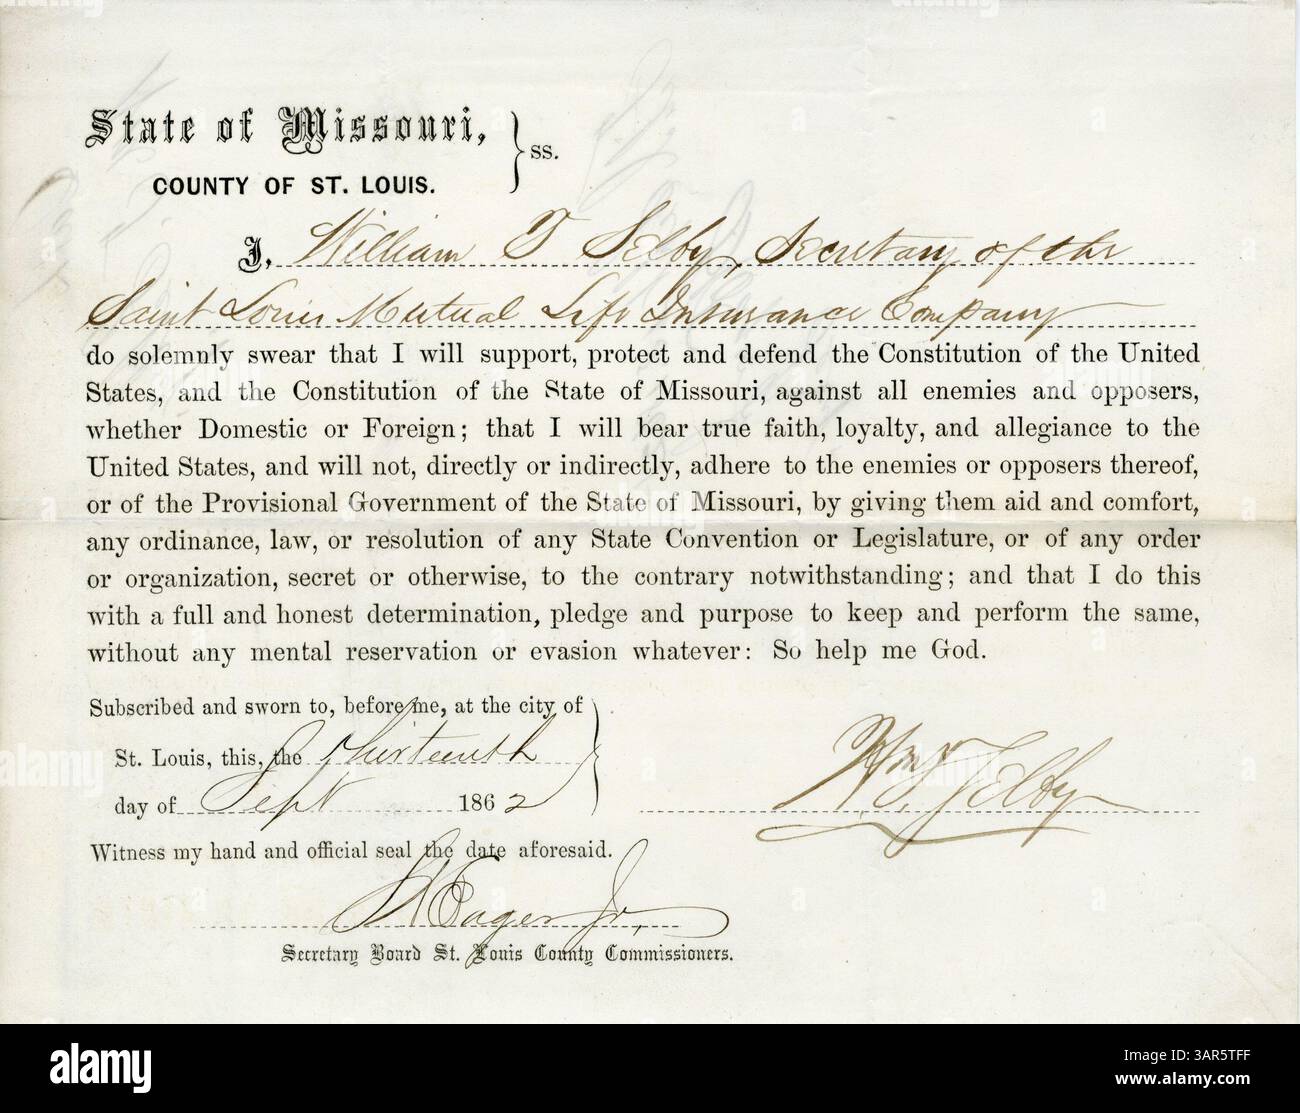 State of Missouri,
COUNTY OF ST. LOUIS. } ss.
I, William T Selby, Secretary of the
Saint Louis Mutual Life Insurance Company
do solemnly swear that I will support, protect and defend the Constitution of the United
States, and the Constitution of the State of Missouri, against all enemies and opposers,
whether Domestic or Foreign; that I will bear true faith, loyalty, and allegiance to the
United States, and will not, directly or indirectly, adhere to the enemies or opposers thereof,
or of the Provisional Government of the State of Missouri, by giving them aid and comfort,
any ordinance, law, or resolution of any State Convention or Legislature, or of any order
or organization, secret or otherwise, to the contrary notwithstanding; and that I do this
with a full and honest determination, pledge and purpose to keep and perform the same,
without any mental reservation or evasion whatever: So help me God.
Subscribed and sworn to, before me, at the city of
St. Louis, this, the thirteenth
day of Sept 1862
Wm T. Selby
Witness my hand and official seal the date aforesaid.
Eager Jr,
Secretary Board St. Louis County Commissioners.
alamy
Image ID: 3AR5TFF
www.alamy.com